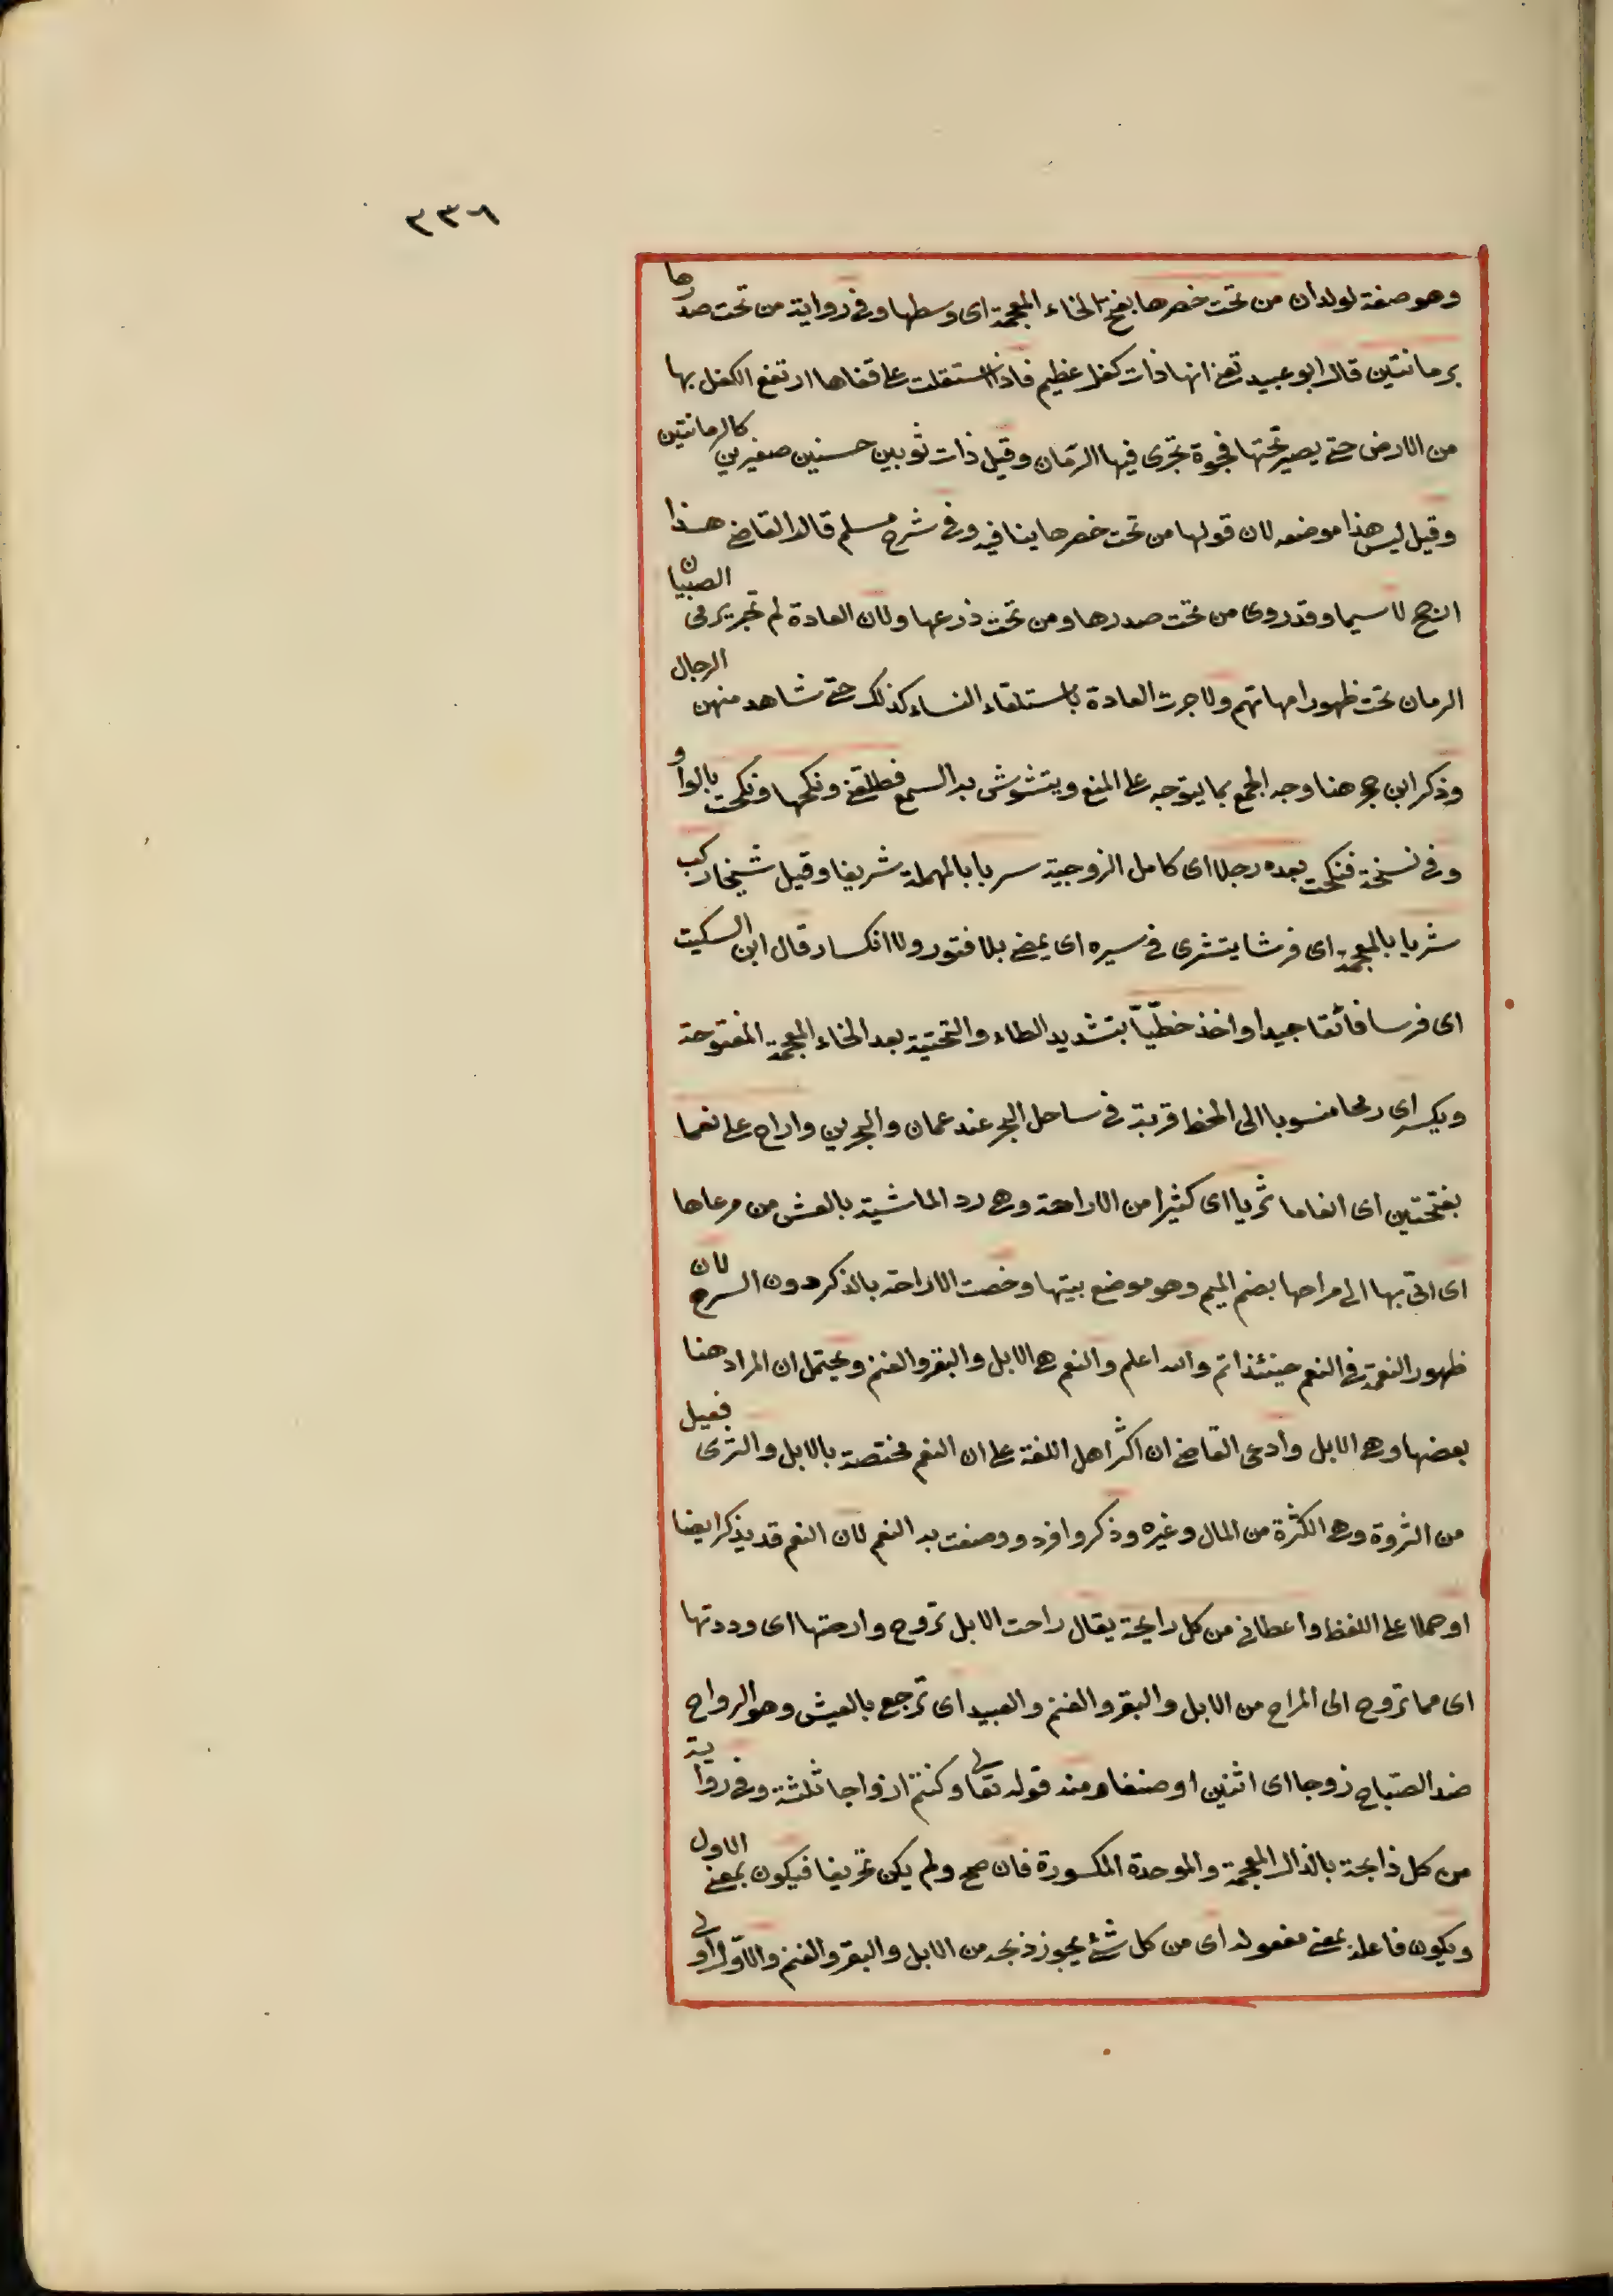 ٢٣٦
وهو صفة لولدان من تحت خصرها بفتح الخاء المعجمة اى وسطها وفى رواية من تحت صدرها
برمانتين قال ابو عبيد تعنى انها ذات كفل عظيم فاذا استقلت على قفاها ارتفع الكفل بها
من الارض حتى يصير تحتها فجوة تجرى فيها الرمان وقيل ذات ثوبين حسنين صغيرين كالرمانتين
وقيل ليس هذا موضعه لان قولها من تحت خصرها ينافيه وفى شرح مسلم قال القاضى هذا
ارجح لا سيما وقد روى من تحت صدرها ومن تحت ذرعها ولان العادة لم تجر برمى الصبيان
الرمان تحت ظهور امهاتهم ولا جرت العادة باستلقاء النساء كذلك حتى تشاهد منهن الرجال
وذكر ابن حجر هنا وجه الجمع بما يتوجه على المنع ويتشوش به السمع فطلقنى ونكحها ونكحت بالواو
وفى نسخة فنكحت بعده رجلا اى كامل الزوجية سريا بالمهملة شريفا وقيل شيخا ركب
شريا بالمعجمة اى فرشا يتشرى فى سيره اى يمضى بلا فتور ولا انكسار قال ابن السكيت
اى فرسا فائقا جيدا واخذ خطّيّا بتشديد الطاء والتحتية بعد الخاء المعجمة المفتوحة
ويكسر اى رمحا منسوبا الى الخط قرية فى ساحل البحر عند عمان والبحرين واراح على نعما
بفتحتين اى انعاما ثريا اى كثيرا من الاراحة وهى رد الماشية بالعشى من مرعاها
اى اتى بها الى مراحها بضم الميم وهو موضع بيتها وخصت الاراحة بالذكر دون السرح لان
ظهور النعمة فى النعم حينئذ اتم والله اعلم والنعم هى الابل والبقر والغنم ويحتمل ان المراد هنا
بعضها وهى الابل وادعى القاضى ان اكثر اهل اللغة على ان النعم مختصة بالابل والثرى فعيل
من الثروة وهى الكثرة من المال وغيره وذكر وافرد ووصفت به النعم لان النعم قد يذكر ايضا
او حملا على اللفظ واعطانى من كل رايحة يقال راحت الابل تروح وارحتها اى ورددتها
اى مما تروح الى المراح من الابل والبقر والغنم والعبيد اى ترجع بالعيش وهو الرواح
ضد الصباح زوجا اى اثنين او صنفا ومنه قوله تعالى وكنتم ازواجا ثلثة وفى رواية
من كل ذابحة بالذال المعجمة والموحدة المكسورة فان صح ولم يكن تحريفا فيكون بمعنى الاول
ويكون فاعلة بمعنى مفعولة اى من كل شئ يجوز ذبحه من الابل والبقر والغنم والاول اولى